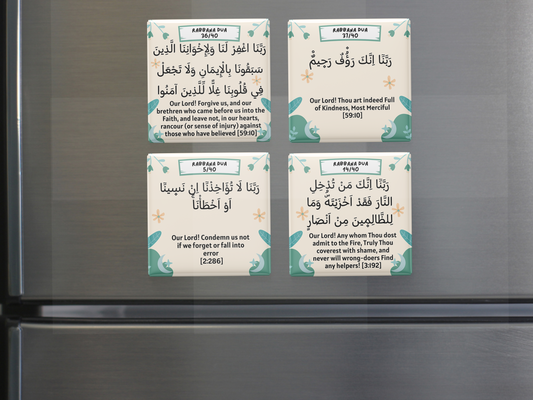 RABBANA DUA
36/40
رَبَّنَا اغْفِرْ لَنَا وَلِإِخْوَانِنَا الَّذِينَ
سَبَقُونَا بِالْإِيمَانِ وَلَا تَجْعَلْ
فِي قُلُوبِنَا غِلًّا لِّلَّذِينَ آمَنُوا
Our Lord! Forgive us, and our
brethren who came before us into the
Faith, and leave not, in our hearts,
rancour (or sense of injury) against
those who have believed [59:10]
RABBANA DUA
37/40
رَبَّنَا إِنَّكَ رَؤُوفٌ رَحِيمٌ
Our Lord! Thou art indeed Full
of Kindness, Most Merciful
[59:10]
RABBANA DUA
5/40
رَبَّنَا لَا تُؤَاخِذْنَا إِنْ نَسِينَا
أَوْ أَخْطَأْنَا
Our Lord! Condemn us not
if we forget or fall into
error
[2:286]
RABBANA DUA
14/40
رَبَّنَا إِنَّكَ مَنْ تُدْخِلِ
النَّارَ فَقَدْ أَخْزَيْتَهُ وَمَا
لِلظَّالِمِينَ مِنْ أَنْصَارٍ
Our Lord! Any whom Thou dost
admit to the Fire, Truly Thou
coverest with shame, and
never will wrong-doers Find
any helpers! [3:192]